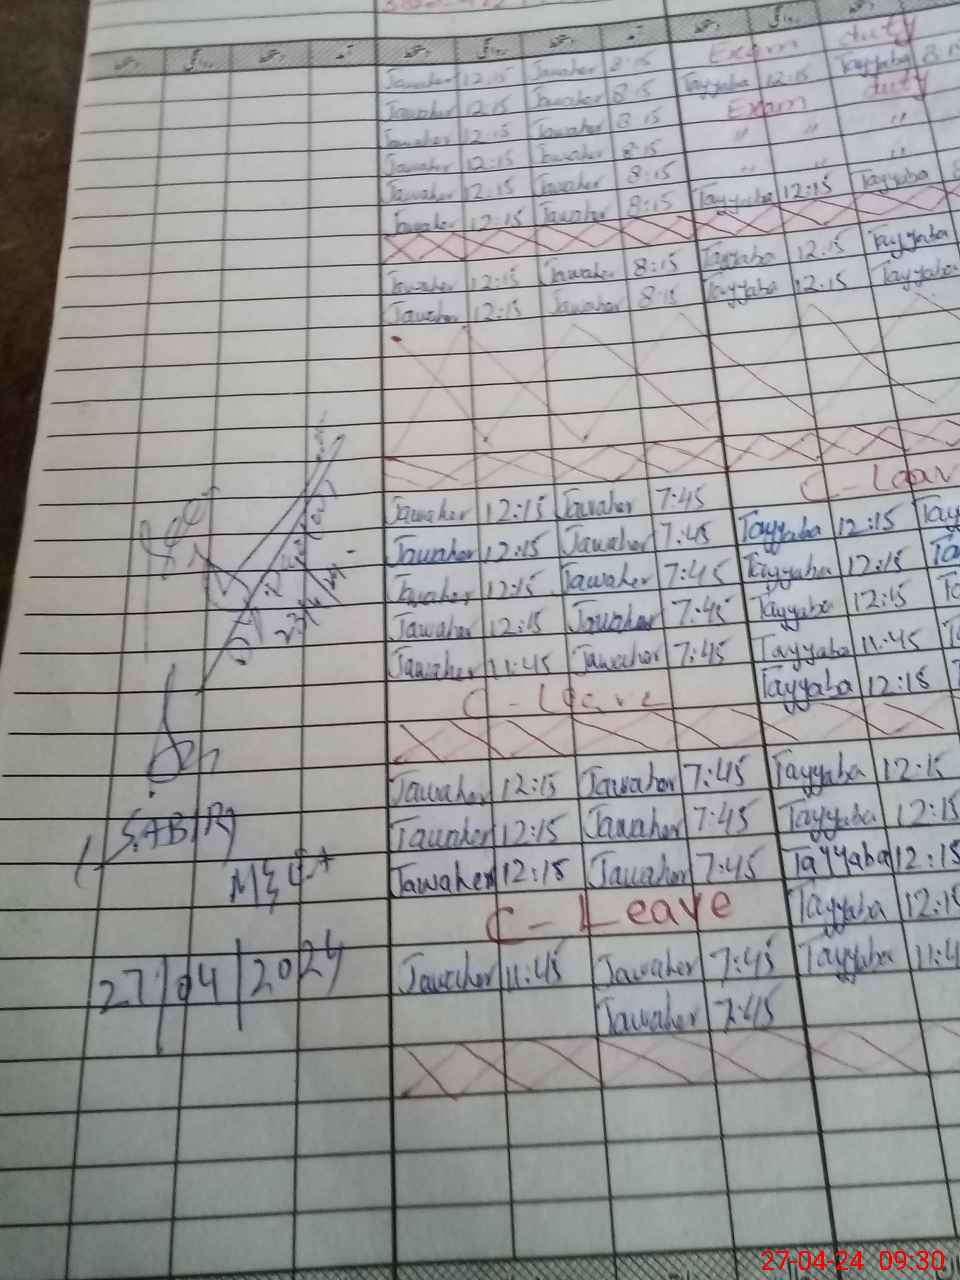 Exam duty
Jawaher 12:15 Jawaher 8:15 Tayyaba 12:15 Tayyaba 8:15
Jawaher 12:15 Jawaher 8:15 Exam duty
Jawaher 12:15 Jawaher 8:15 " " "
Jawaher 12:15 Jawaher 8:15 " " "
Jawaher 12:15 Jawaher 8:15 Tayyaba 12:15 Tayyaba 8
Jawaher 12:15 Jawaher 8:15
Jawaher 12:15 Jawaher 8:15 Tayyaba 12:15 Tayyaba
Jawaher 12:15 Jawaher 8:15 Tayyaba 12:15 Tayyaba
Jawaher 12:15 Jawaher 7:45 C - Leav
Jawaher 12:15 Jawaher 7:45 Tayyaba 12:15 Tay
Jawaher 12:15 Jawaher 7:45 Tayyaba 12:15 Ta
Jawaher 12:15 Jawaher 7:45 Tayyaba 12:15 Ta
Jawaher 11:45 Jawaher 7:45 Tayyaba 11:45
C - Leave Tayyaba 12:15
Jawaher 12:15 Jawaher 7:45 Tayyaba 12:15
Jawaher 12:15 Jawaher 7:45 Tayyaba 12:15
Jawaher 12:15 Jawaher 7:45 Tayyaba 12:15
C - Leave Tayyaba 12:15
Jawaher 11:45 Jawaher 7:45 Tayyaba 11:4
Jawaher 7:45
(SABIR)
27/04/2024
27-04-24 09:30